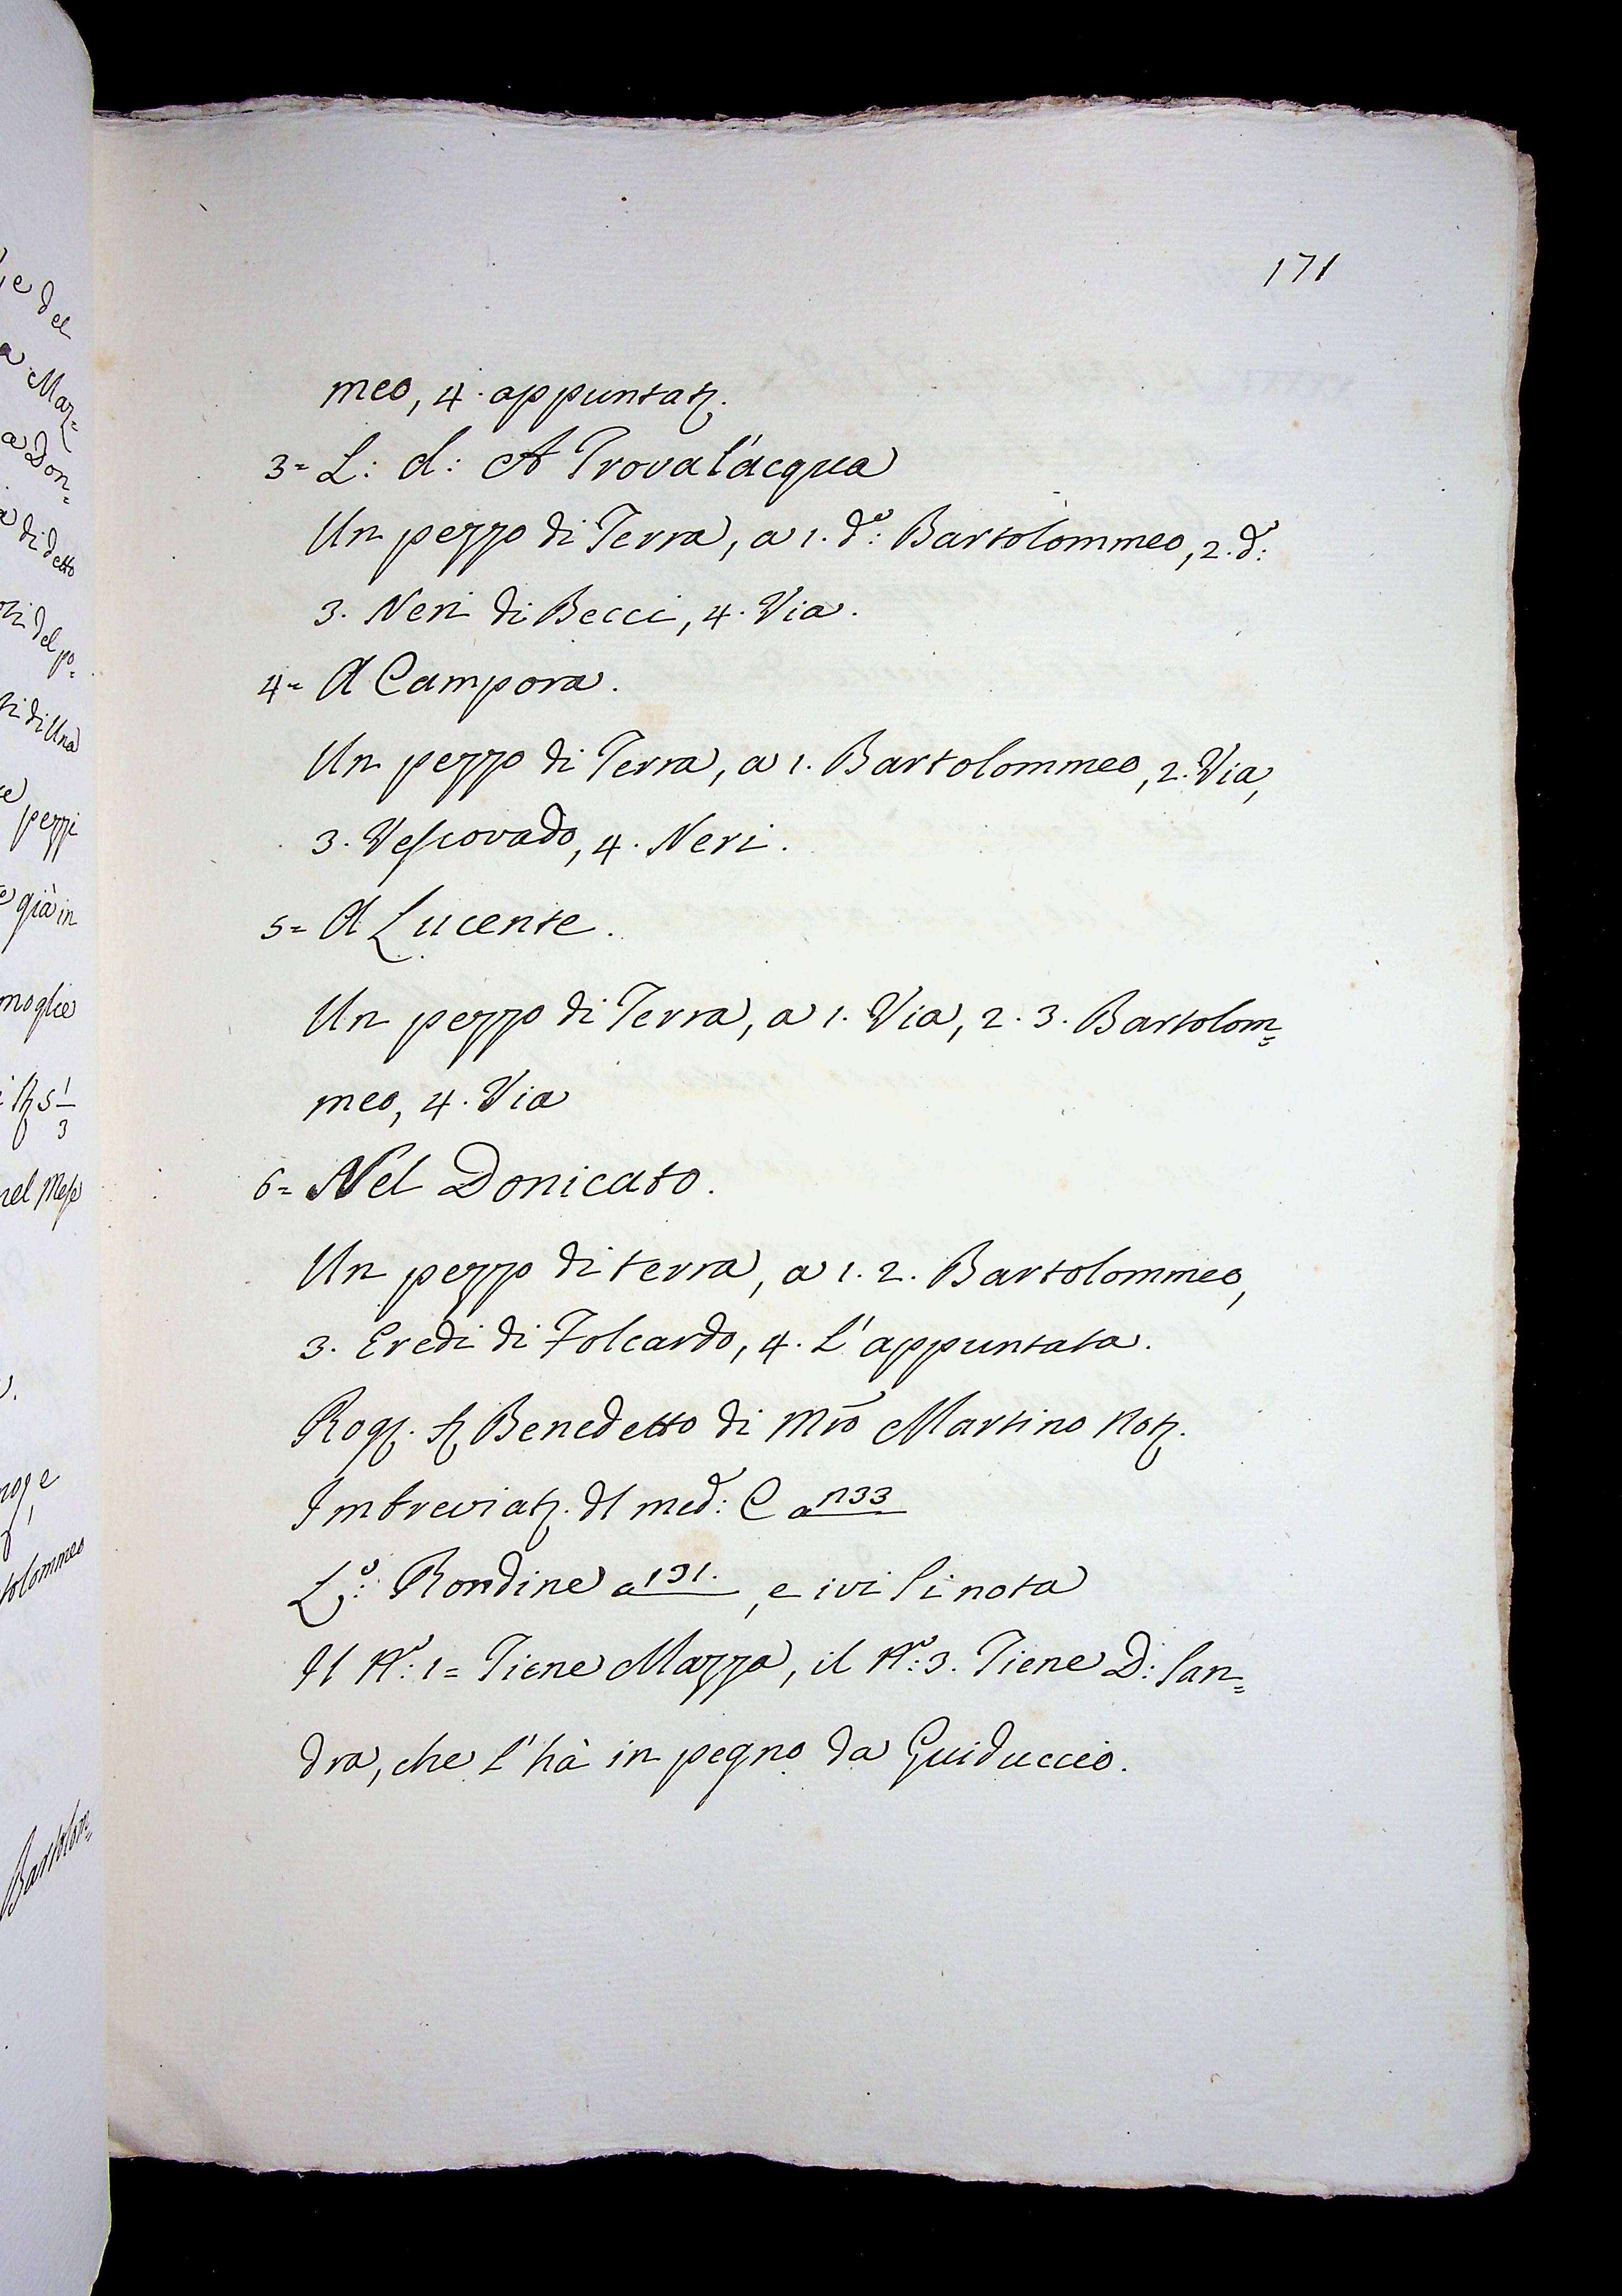 171
meo, 4. appuntatꝫ.
3= L: d: A Troval'acqua
Un pezzo di Terra, a 1. dº: Bartolommeo, 2. dº:
3. Neri di Becci, 4. Via.
4= A Campora.
Un pezzo di Terra, a 1. Bartolommeo, 2. Via,
3. Vescovado, 4. Neri.
5= A Lucente.
Un pezzo di Terra, a 1. Via, 2. 3. Bartolom=
meo, 4. Via
6= Nel Donicato.
Un pezzo di terra, a 1. 2. Bartolommeo,
3. Eredi di Folcardo, 4. L'appuntata.
Rogꝫ. Benedetto di Mr̃o Martino Notꝫ.
Imbreviatꝫ. dl medº: C a n33
Lº: Rondine a 191. , e ivi si nota
Il Nº: 1= Tiene Mazza, il Nº: 3. Tiene D: San=
dra, che l'hà in pegno da Guiduccio.